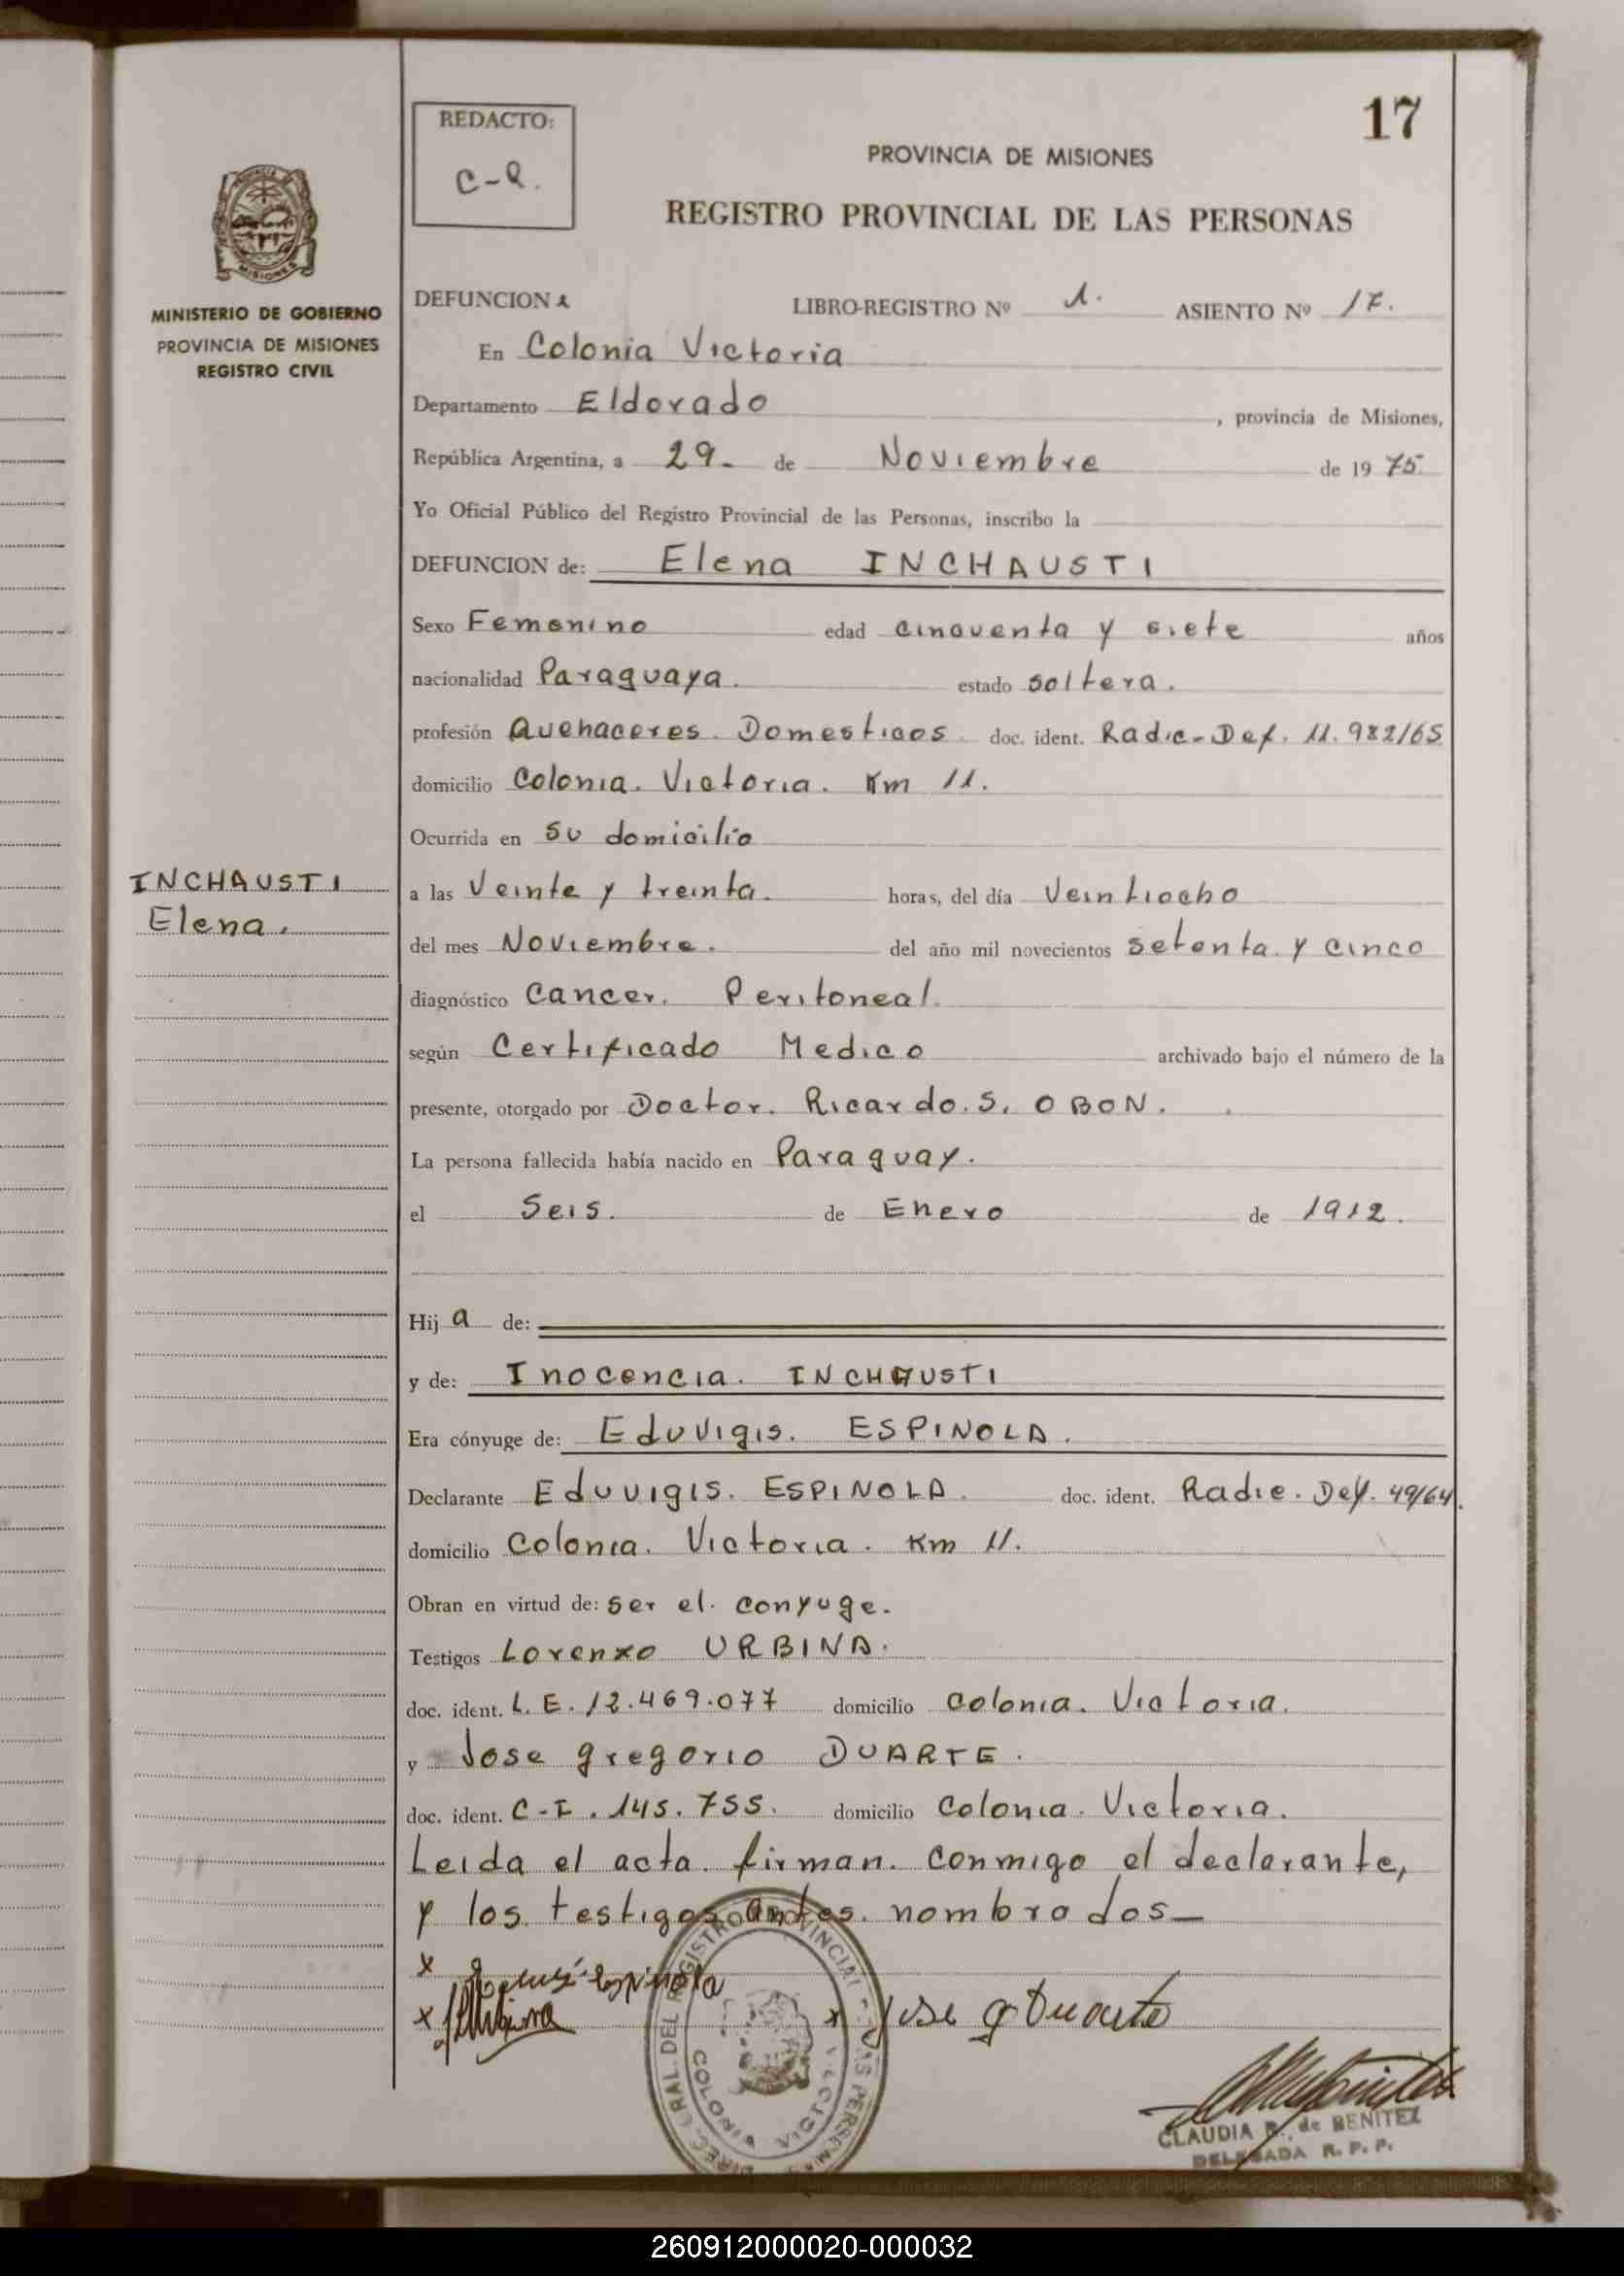 17
REDACTO:
C-Q.
PROVINCIA DE MISIONES
REGISTRO PROVINCIAL DE LAS PERSONAS
MISIONES
MINISTERIO DE GOBIERNO
PROVINCIA DE MISIONES
REGISTRO CIVIL
DEFUNCION A LIBRO-REGISTRO Nº 1. ASIENTO Nº 17.
En Colonia Victoria
Departamento Eldorado, provincia de Misiones,
República Argentina, a 29- de Noviembre de 1975.
Yo Oficial Público del Registro Provincial de las Personas, inscribo la
DEFUNCION de: Elena INCHAUSTI
Sexo Femenino edad cincuenta y siete años
nacionalidad Paraguaya. estado soltera.
profesión Quehaceres. Domesticos doc. ident. Radic-Def. 11.982/65
domicilio Colonia. Victoria. Km 11.
Ocurrida en su domicilio
INCHAUSTI
Elena.
a las Veinte y treinta. horas, del día Veintiocho
del mes Noviembre. del año mil novecientos setenta y cinco
diagnóstico Cancer. Peritoneal.
según Certificado Medico archivado bajo el número de la
presente, otorgado por Doctor. Ricardo. S. OBON.
La persona fallecida había nacido en Paraguay.
el Seis. de Enero de 1912.
Hija de:
y de: Inocencia. INCHAUSTI
Era cónyuge de: Eduvigis. ESPINOLA.
Declarante Eduvigis. ESPINOLA. doc. ident. Radic. Def. 49/64.
domicilio Colonia. Victoria. Km 11.
Obran en virtud de: ser el. conyuge.
Testigos Lorenzo URBINA.
doc. ident. L. E. 12.469.077 domicilio Colonia. Victoria.
y Jose gregorio DUARTE.
doc. ident. C-I. 145.755. domicilio Colonia. Victoria.
Leida el acta. firman. conmigo el declarante,
y los testigos antes. nombrados—
x Espinola
x x Jose g Duarte
DIREC. GRAL. DEL REGISTRO PROVINCIAL DE LAS PERSONAS
COLONIA VICTORIA
CLAUDIA R. de BENITEZ
DELEGADA R. P. P.
260912000020-000032